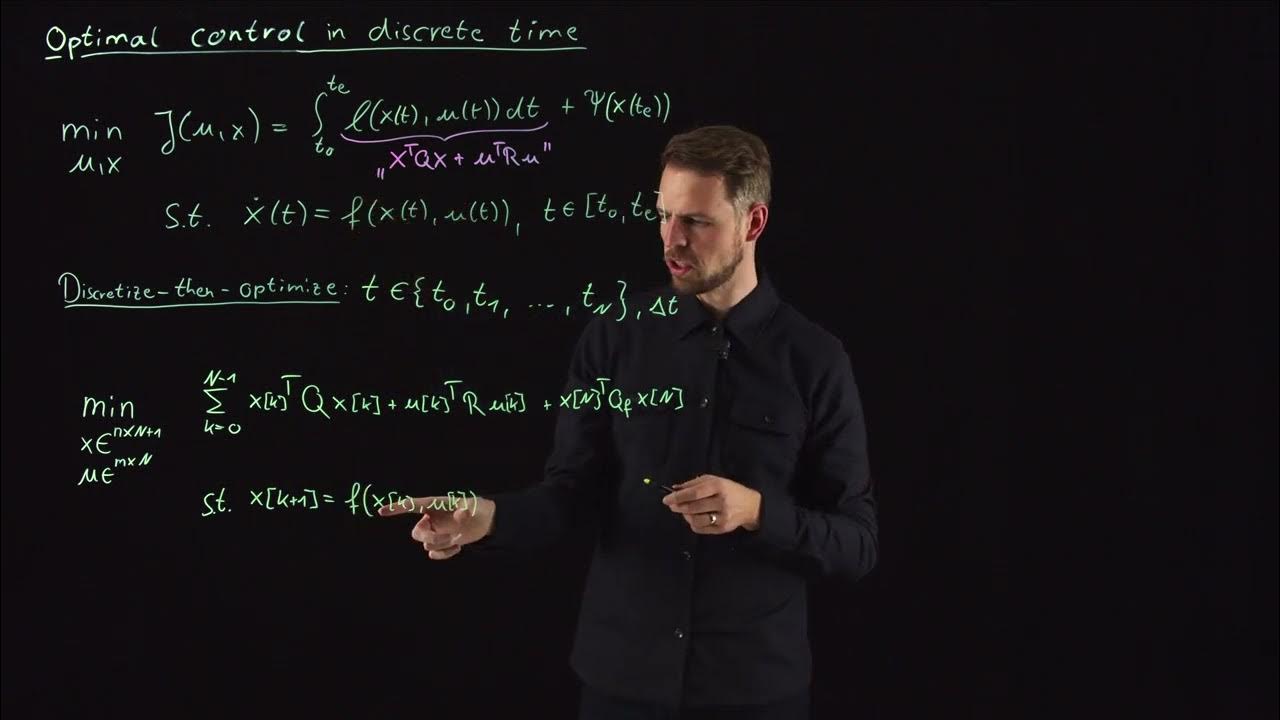 Optimal control in discrete time
min J(u,x) = ∫ₜ₀ᵗᵉ ℓ(x(t), u(t)) dt + Ψ(x(tₑ))
u,x
"xᵀQx + uᵀRu"
s.t. ẋ(t) = f(x(t), u(t)), t ∈ [t₀, tₑ]
Discretize-then-optimize: t ∈ {t₀, t₁, ..., t_N}, Δt
min ∑ₖ₌₀ᴺ⁻¹ x[k]ᵀ Q x[k] + u[k]ᵀ R u[k] + x[N]ᵀ Q_f x[N]
x ∈ ⁿˣᴺ⁺¹
u ∈ ᵐˣᴺ
s.t. x[k+1] = f(x[k], u[k])